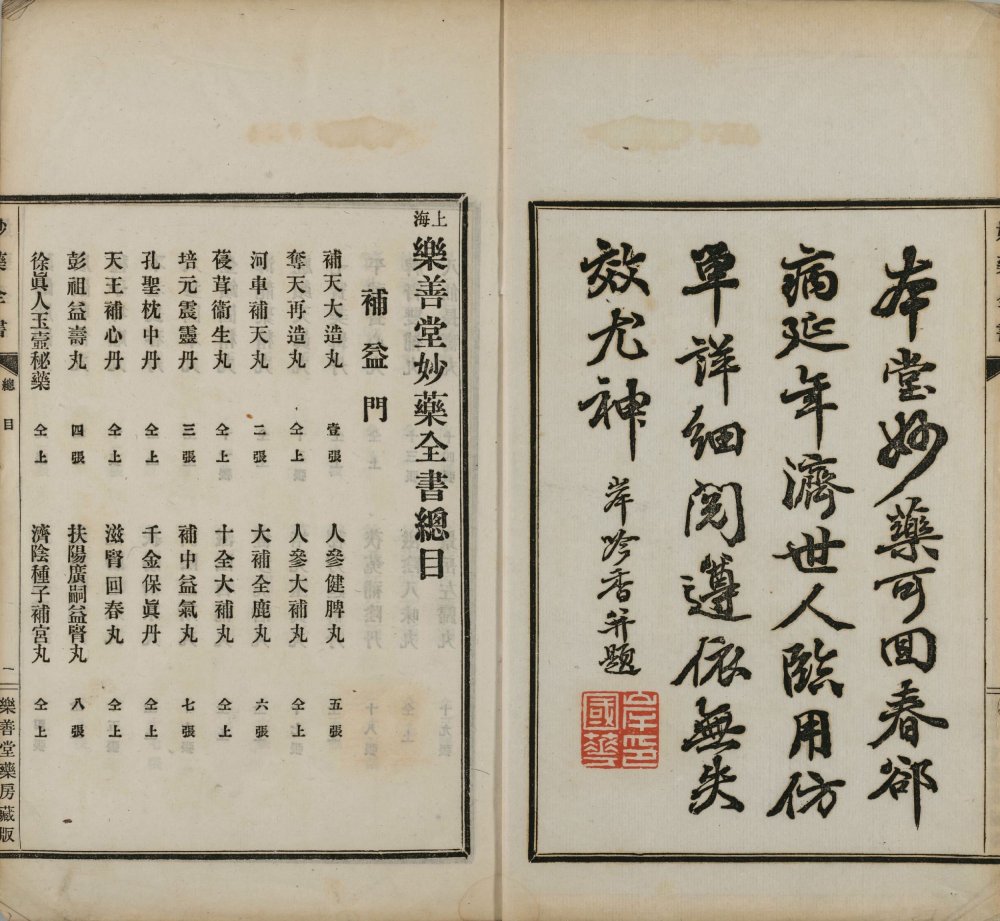 本堂妙藥可回春郤
病延年濟世人臨用仿
單詳細閱遵依無失
效尤神
岸吟香并題
岸國華印
上海樂善堂妙藥仝書總目
補益門
補天大造丸 壹張 人參健脾丸 五張
奪天再造丸 仝上 人參大補丸 仝上
河車補天丸 二張 大補全鹿丸 六張
葠茸衞生丸 仝上 十全大補丸 仝上
培元震靈丹 三張 補中益氣丸 七張
孔聖枕中丹 仝上 千金保眞丹 仝上
天王補心丹 仝上 滋腎回春丸 仝上
彭祖益壽丸 四張 扶陽廣嗣益腎丸 八張
徐眞人玉壼秘藥 仝上 濟陰種子補宮丸 仝上
妙藥全書 總目 一 樂善堂藥房藏版